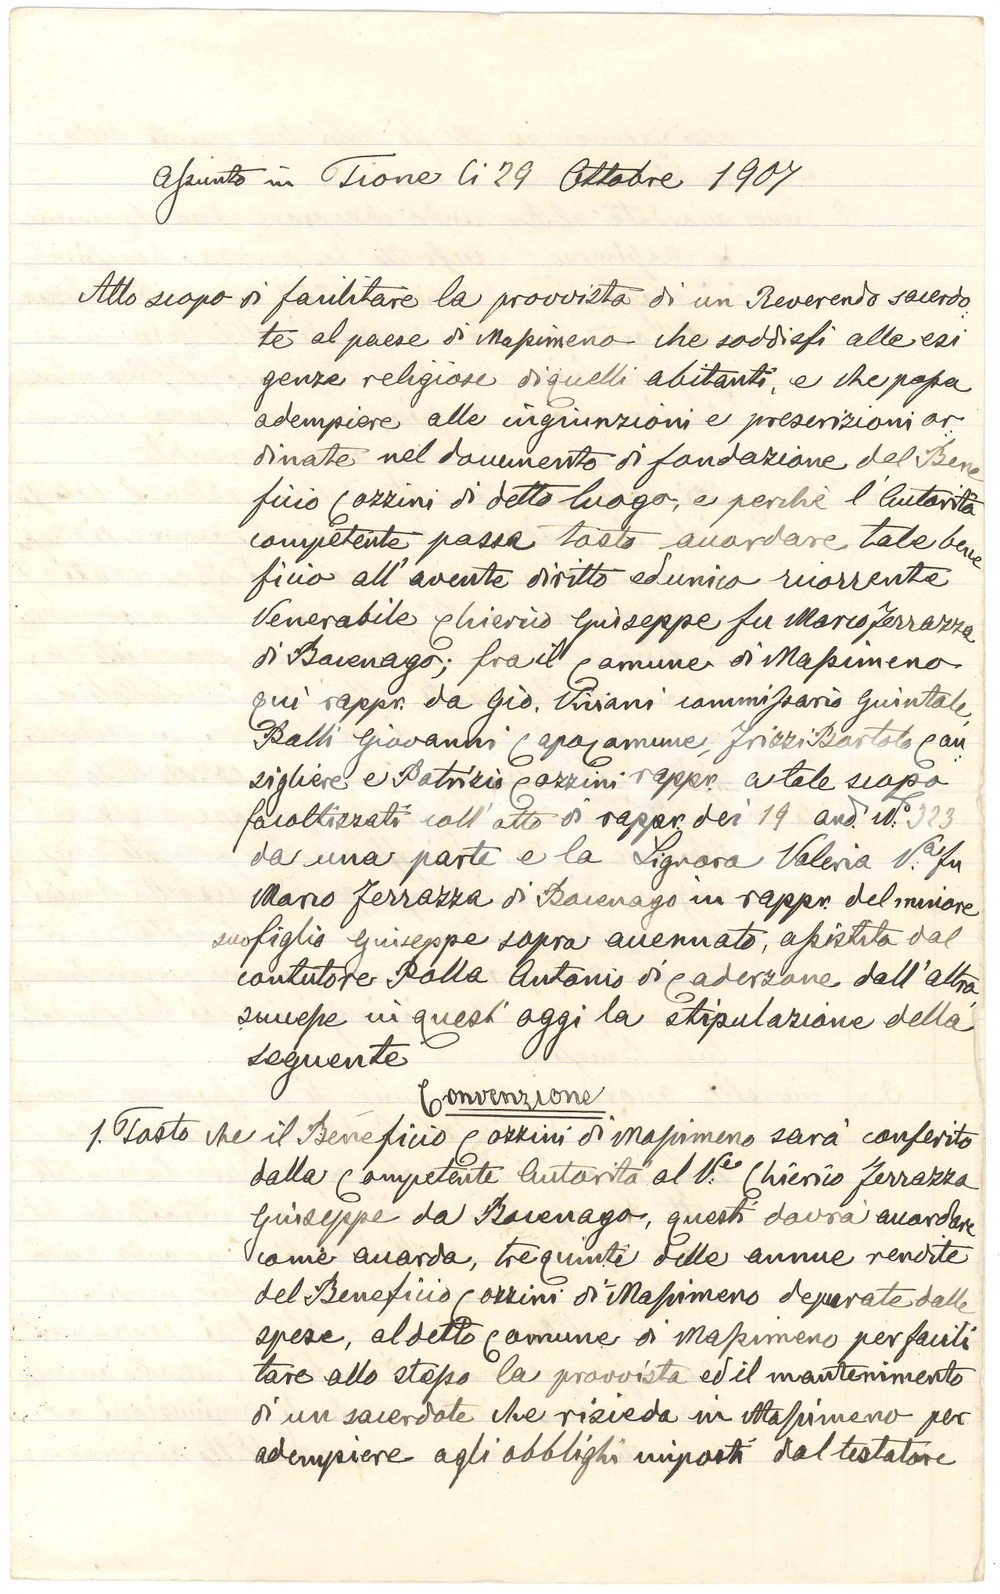 Assunto in Tione li 29 Ottobre 1907
Allo scopo di facilitare la provvista di un Reverendo sacerdo
te al paese di Massimeno che soddisfi alle esi
genze religiose di quelli abitanti, e che possa
adempiere alle ingiunzioni e prescrizioni or
dinate nel documento di fondazione del Bene
ficio Cozzini di detto luogo, e perchè l'Autorità
competente possa tosto accordare tale bene
ficio all'avente diritto ed unico ricorrente
Venerabile Chierico Giuseppe fu Marco Ferrazza
di Bocenago; fra il Comune di Massimeno
qui rappr. da Gio. Viviani commissario Guintale,
Balli Giovanni Capocomune, Frizzi Bortolo Con
sigliere e Patrizio Cozzini rappr. a tale scopo
facoltizzati coll'atto di rappr. dei 19 and. No. 323
da una parte e la Signora Valeria V.a fu
Marco Ferrazza di Bocenago in rappr. del minore
suo figlio Giuseppe sopra accennato, assistita dal
contutore Polla Antonio di Caderzone dall'altra
successe in quest'oggi la stipulazione della
seguente
Convenzione
1. Tosto che il Beneficio Cozzini di Massimeno sarà conferito
dalla Competente Autorità al V.le Chierico Ferrazza
Giuseppe da Bocenago, questi dovrà accordare
come accorda, tre quinti delle annue rendite
del Beneficio Cozzini di Massimeno depurate dalle
spese, al detto Comune di Massimeno per facili
tare allo stesso la provvista ed il mantenimento
di un sacerdote che risieda in Massimeno per
adempiere agli obblighi imposti dal testatore